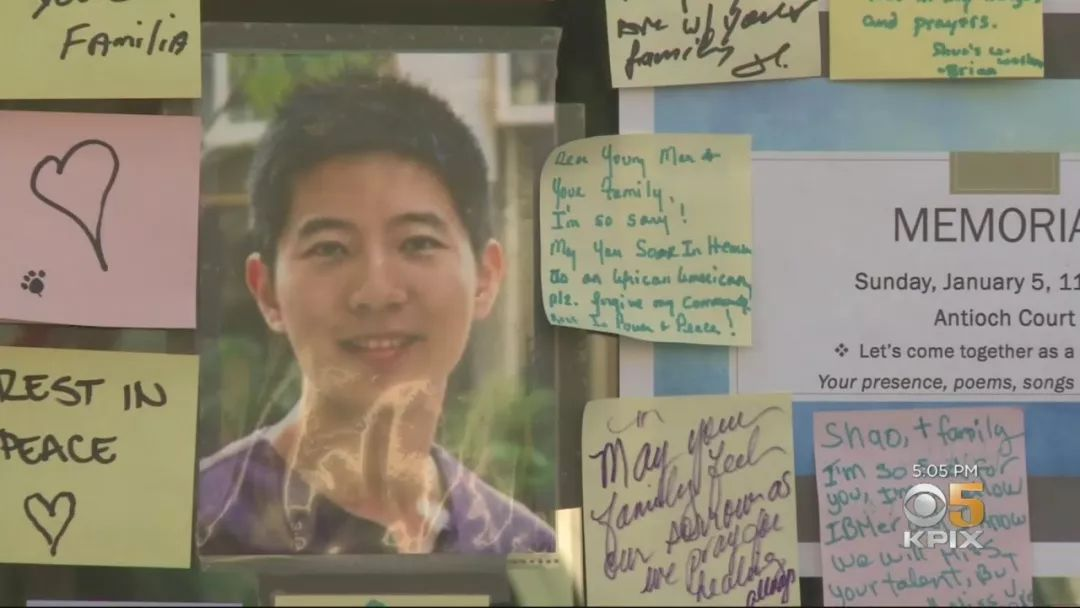 Familia
REST IN
PEACE
are w/ your
family
and prayers.
Shao's co-worker
-Brian
Dear Young Man &
Your Family,
I'm so sorry!
May You Soar In Heaven
an African American
plz. forgive my
Rest In Power & Peace!
MEMORIA
Sunday, January 5, 11
Antioch Court
❖ Let's come together as a
Your presence, poems, songs
May your
family feel
our sorrow as
we pray for
healing
always
Shao, + family
I'm so for
you, I'm
IBMer
we will
your talent, But
5:05 PM
5
KPIX